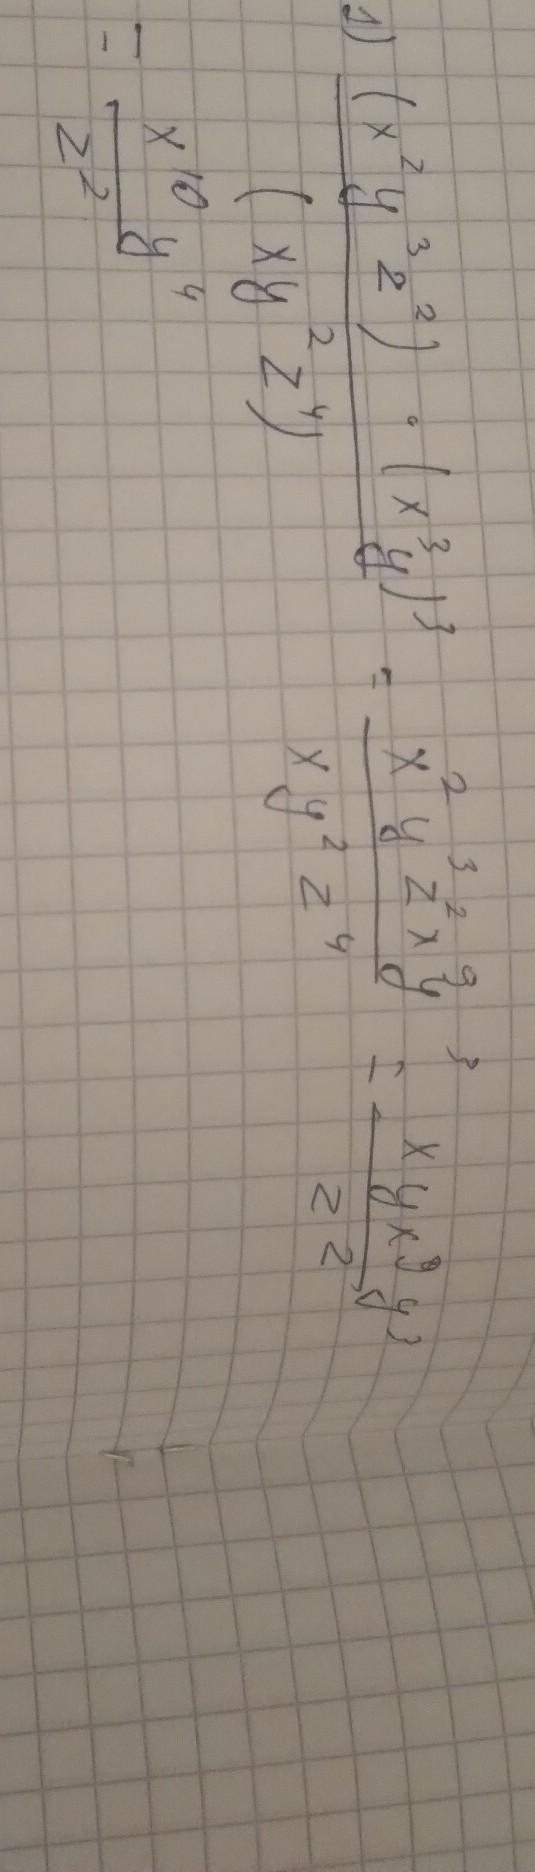 1) (x²y³z²) · (x³y)³ / (xy²z⁴) = x²y³z²x⁹y³ / xy²z⁴ = xyx⁹y³ / z²
= x¹⁰y⁴ / z²